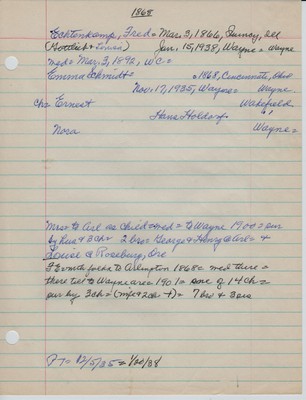 1868
Echtonkamp, Fred = Mar. 3, 1866, Quincy, Ill
(Gottlieb + Louisa) Jan. 15, 1938, Wayne = Wayne
med = Mar. 3, 1892, WC =
Emma Schmidt = 1868, Cincinnati, Ohio
Nov. 17, 1935, Wayne = Wayne
Ch = Ernest Wakefield
Hans Holdorf "
Nora Wayne =
Mrs = to Arl as child = med = to Wayne 1900 = sur
by hus & 3 ch = 2 bro = George & Henry @ Arl = +
Louise @ Roseburg, Ore
F E = with folks to Arlington 1868 = med there =
there til to Wayne area = 1901 = one of 14 ch =
sur by 3 ch = (wife + 2 ch +) = 7 bro & 3 sis
PT = 12/5/35 = 1/20/38